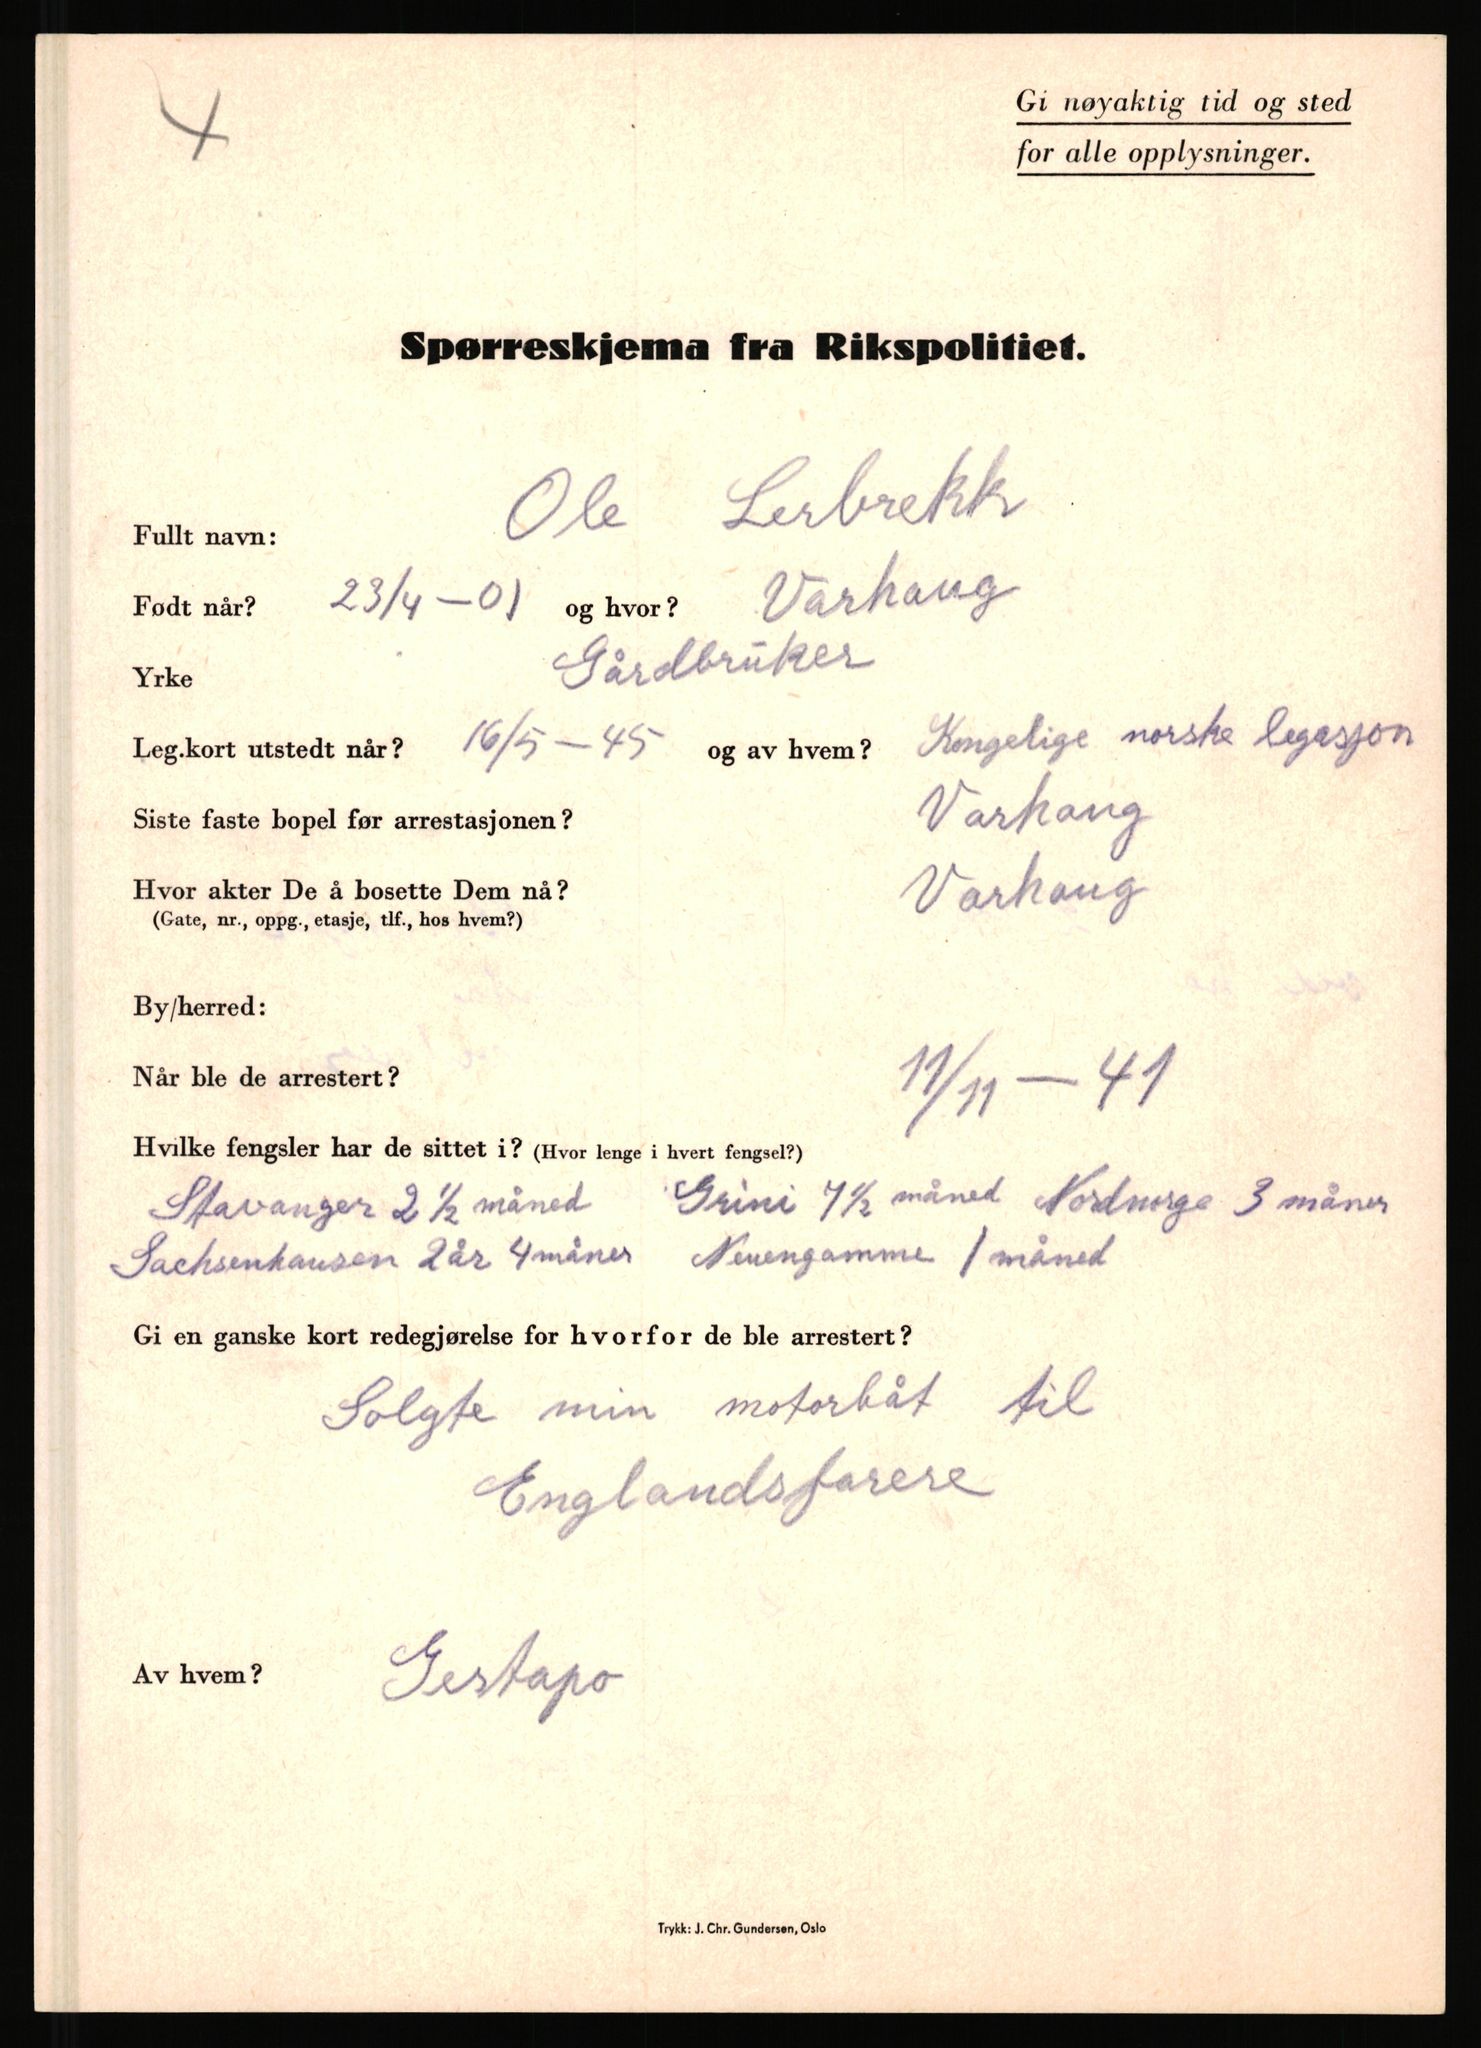 4
Gi nøyaktig tid og sted
for alle opplysninger.
Spørreskjema fra Rikspolitiet.
Fullt navn: Ole Lerbrekk
Født når? 23/4 – 01 og hvor? Varhaug
Yrke Gårdbruker
Leg.kort utstedt når? 16/5 – 45 og av hvem? Kongelige norske legasjon
Siste faste bopel før arrestasjonen? Varhaug
Hvor akter De å bosette Dem nå? Varhaug
(Gate, nr., oppg., etasje, tlf., hos hvem?)
By/herred:
Når ble de arrestert? 11/11 – 41
Hvilke fengsler har de sittet i? (Hvor lenge i hvert fengsel?)
Stavanger 2 1/2 måned Grini 7 1/2 måned Nordnorge 3 måner
Sachsenhausen 2 år 4 måner Neuengamme 1 måned
Gi en ganske kort redegjørelse for hvorfor de ble arrestert?
Solgte min motorbåt til
Englandsfarere
Av hvem? Gestapo
Trykk: J. Chr. Gundersen, Oslo